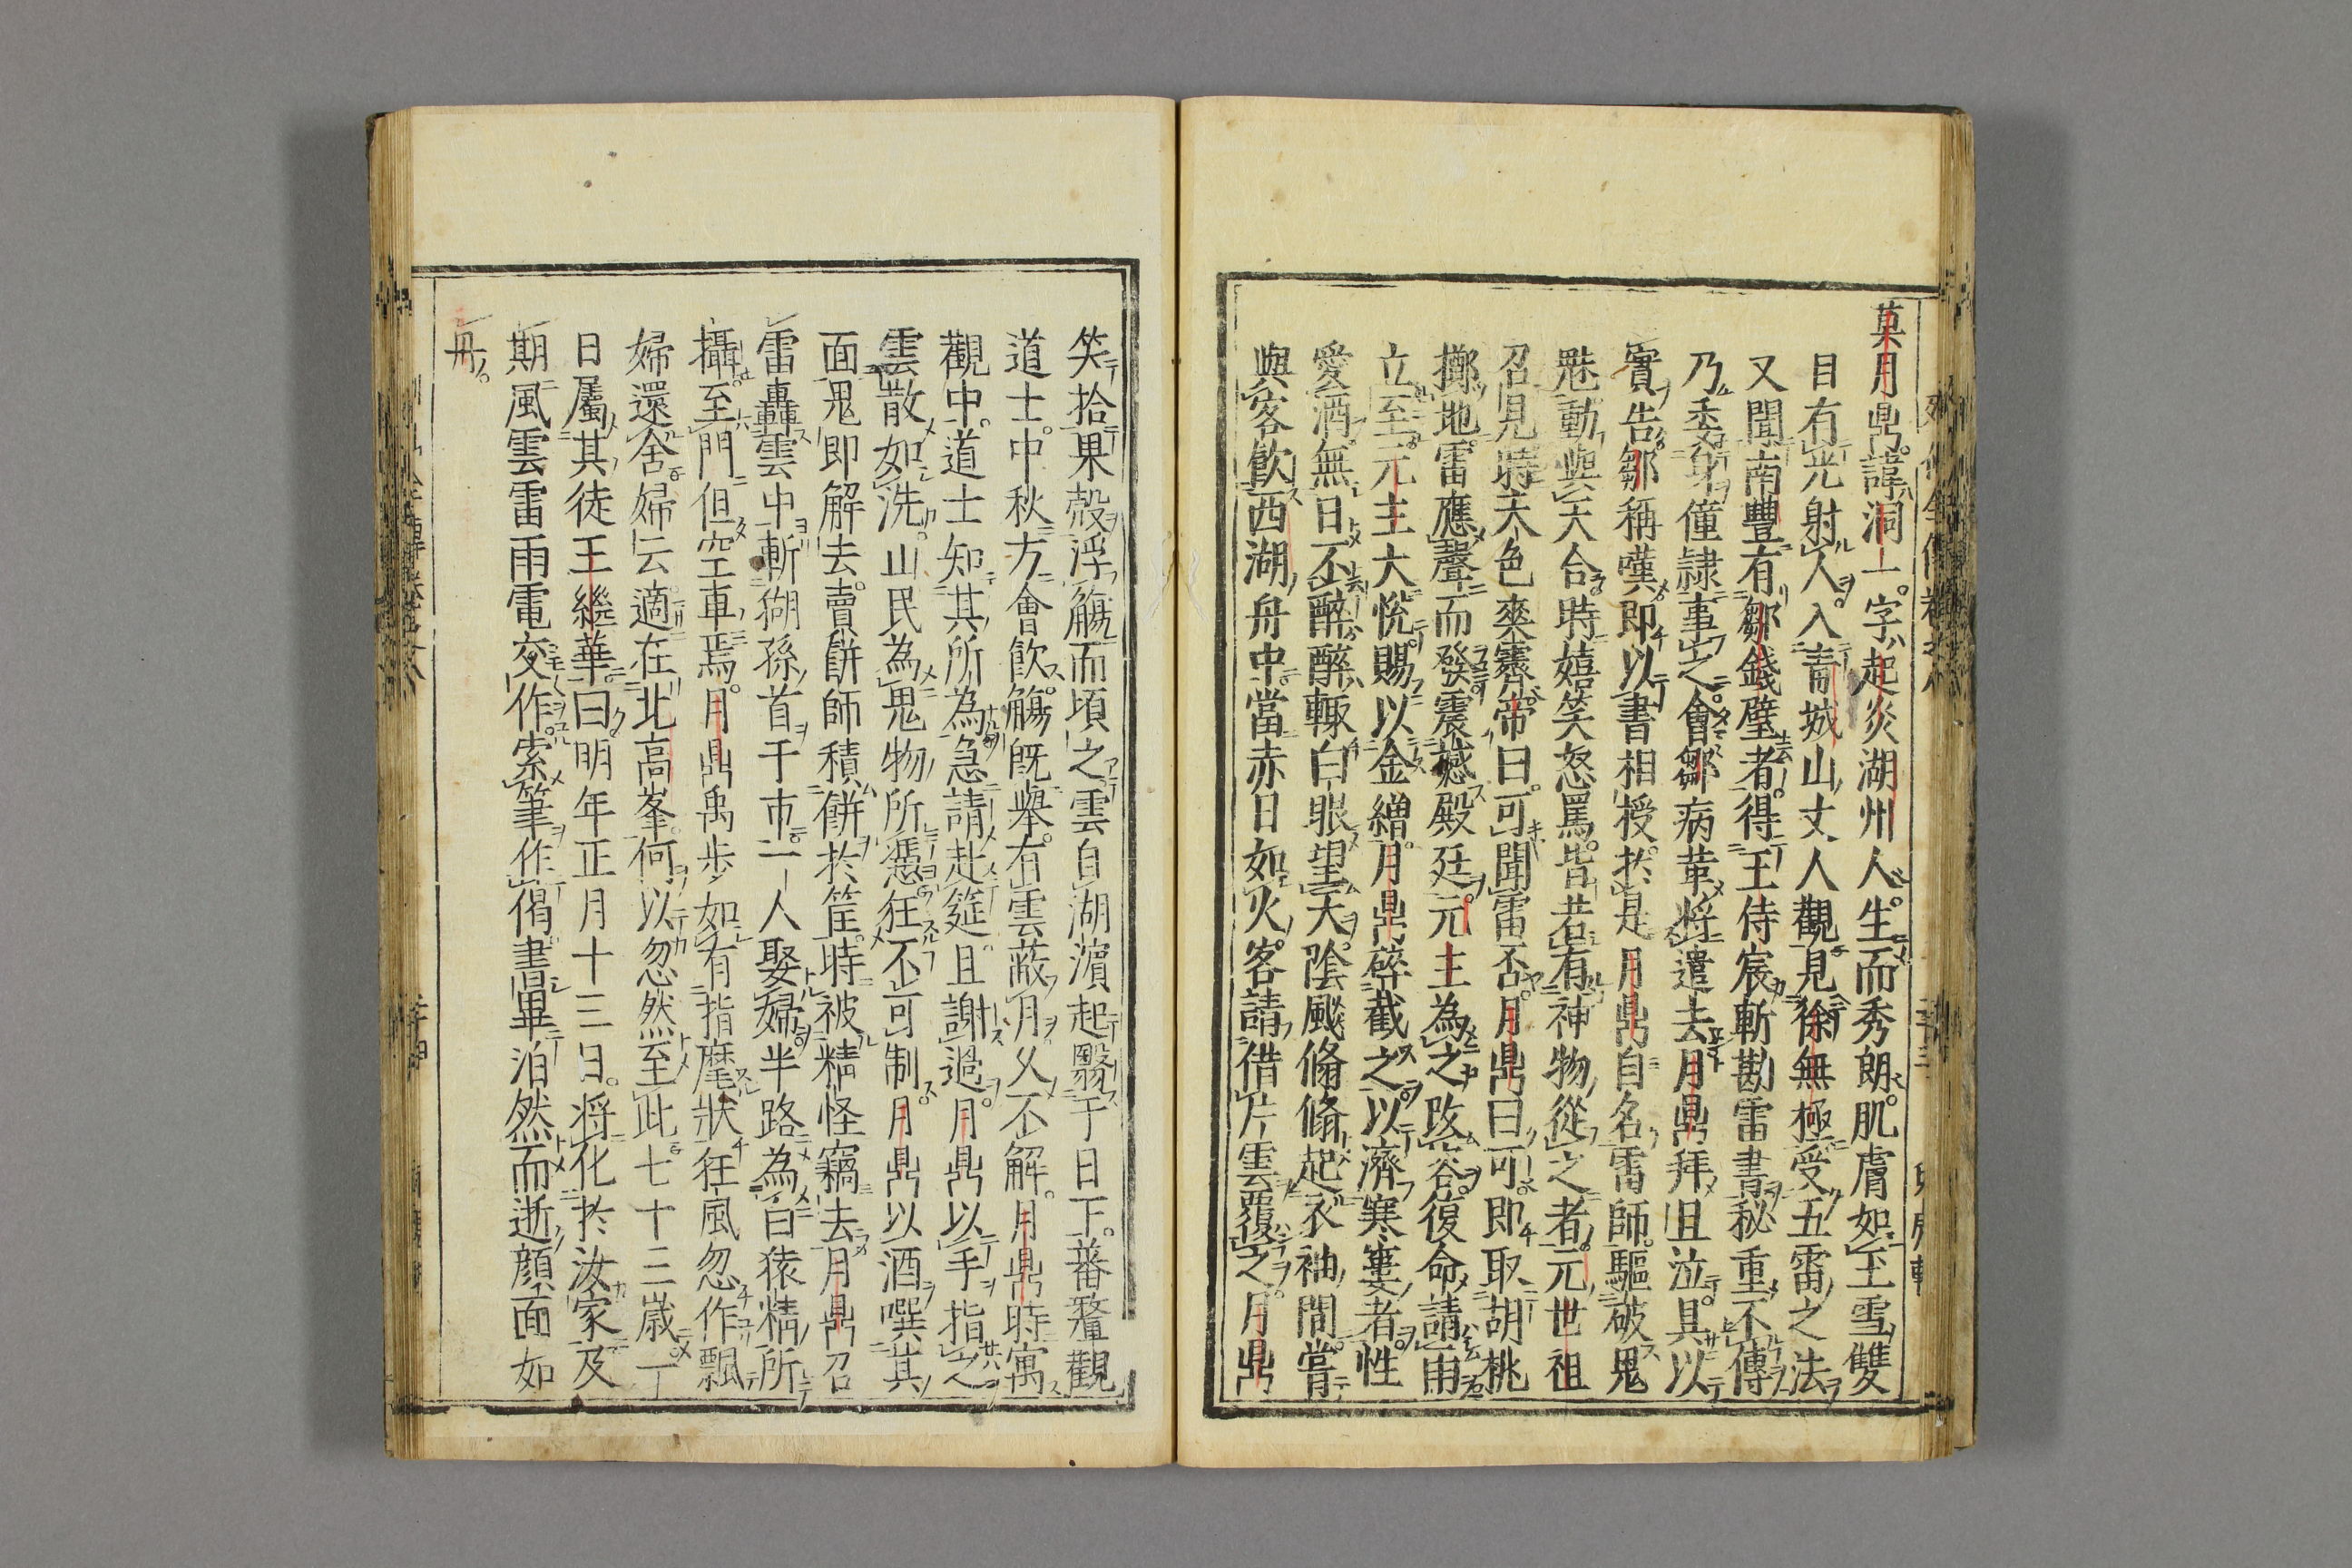 莫月鼎。諱洞一。字起炎湖州人。生而秀朗。肌膚如玉雪雙
目有光射人。入青城山丈人觀見徐無極受五雷之法
又聞南豐有鄒鐵壁者。得王侍宸斬勘雷書秘重不傳
乃委身僮隸事之。會鄒病革將遣去月鼎拜且泣。具以
實告鄒稱嘆即以書相授。於是月鼎自名雷師。驅破鬼
魅動與天合時嬉笑怒罵。皆若有神物從之者。元世祖
召見時天色爽霽。帝曰。可聞雷否。月鼎曰可。即取胡桃
擲地。雷應聲而發。震撼殿廷。元主為之改容。復命請雨
立至。元主大悦。賜以金繒。月鼎碎截之。以濟寒窶者。性
愛酒。無日不醉。醉輒白眼望天。陰颷翛翛起衣袖間。嘗
與客飲西湖舟中。當赤日如火。客請借片雲覆之。月鼎
笑拾果殼浮觴而頃之雲自湖濵起翳于日下。蕃釐觀
道士。中秋方會飲。觴既舉。有雲蔽月乆不解。月鼎時寓
觀中。道士知其所為急請赴筵。且謝過。月鼎以手指之
雲散如洗。山民為鬼物所憑狂不可制。月鼎以酒噀其
面鬼即解去。賣餅師積餅於筐。時被精怪竊去月鼎召
雷轟轟雲中斬猢孫首于市。一人娶婦。半路為白猿精所
攝至門但空車焉。月鼎禹步如有指麾狀狂風忽作飄
婦還舍婦云適在北高峯。何以忽然至此七十三歳一
日屬其徒王繼華。曰。明年正月十三日。将化於汝家及
期風雲雷雨電交作。索筆作偈。書畢泊然而逝顔面如
丹。